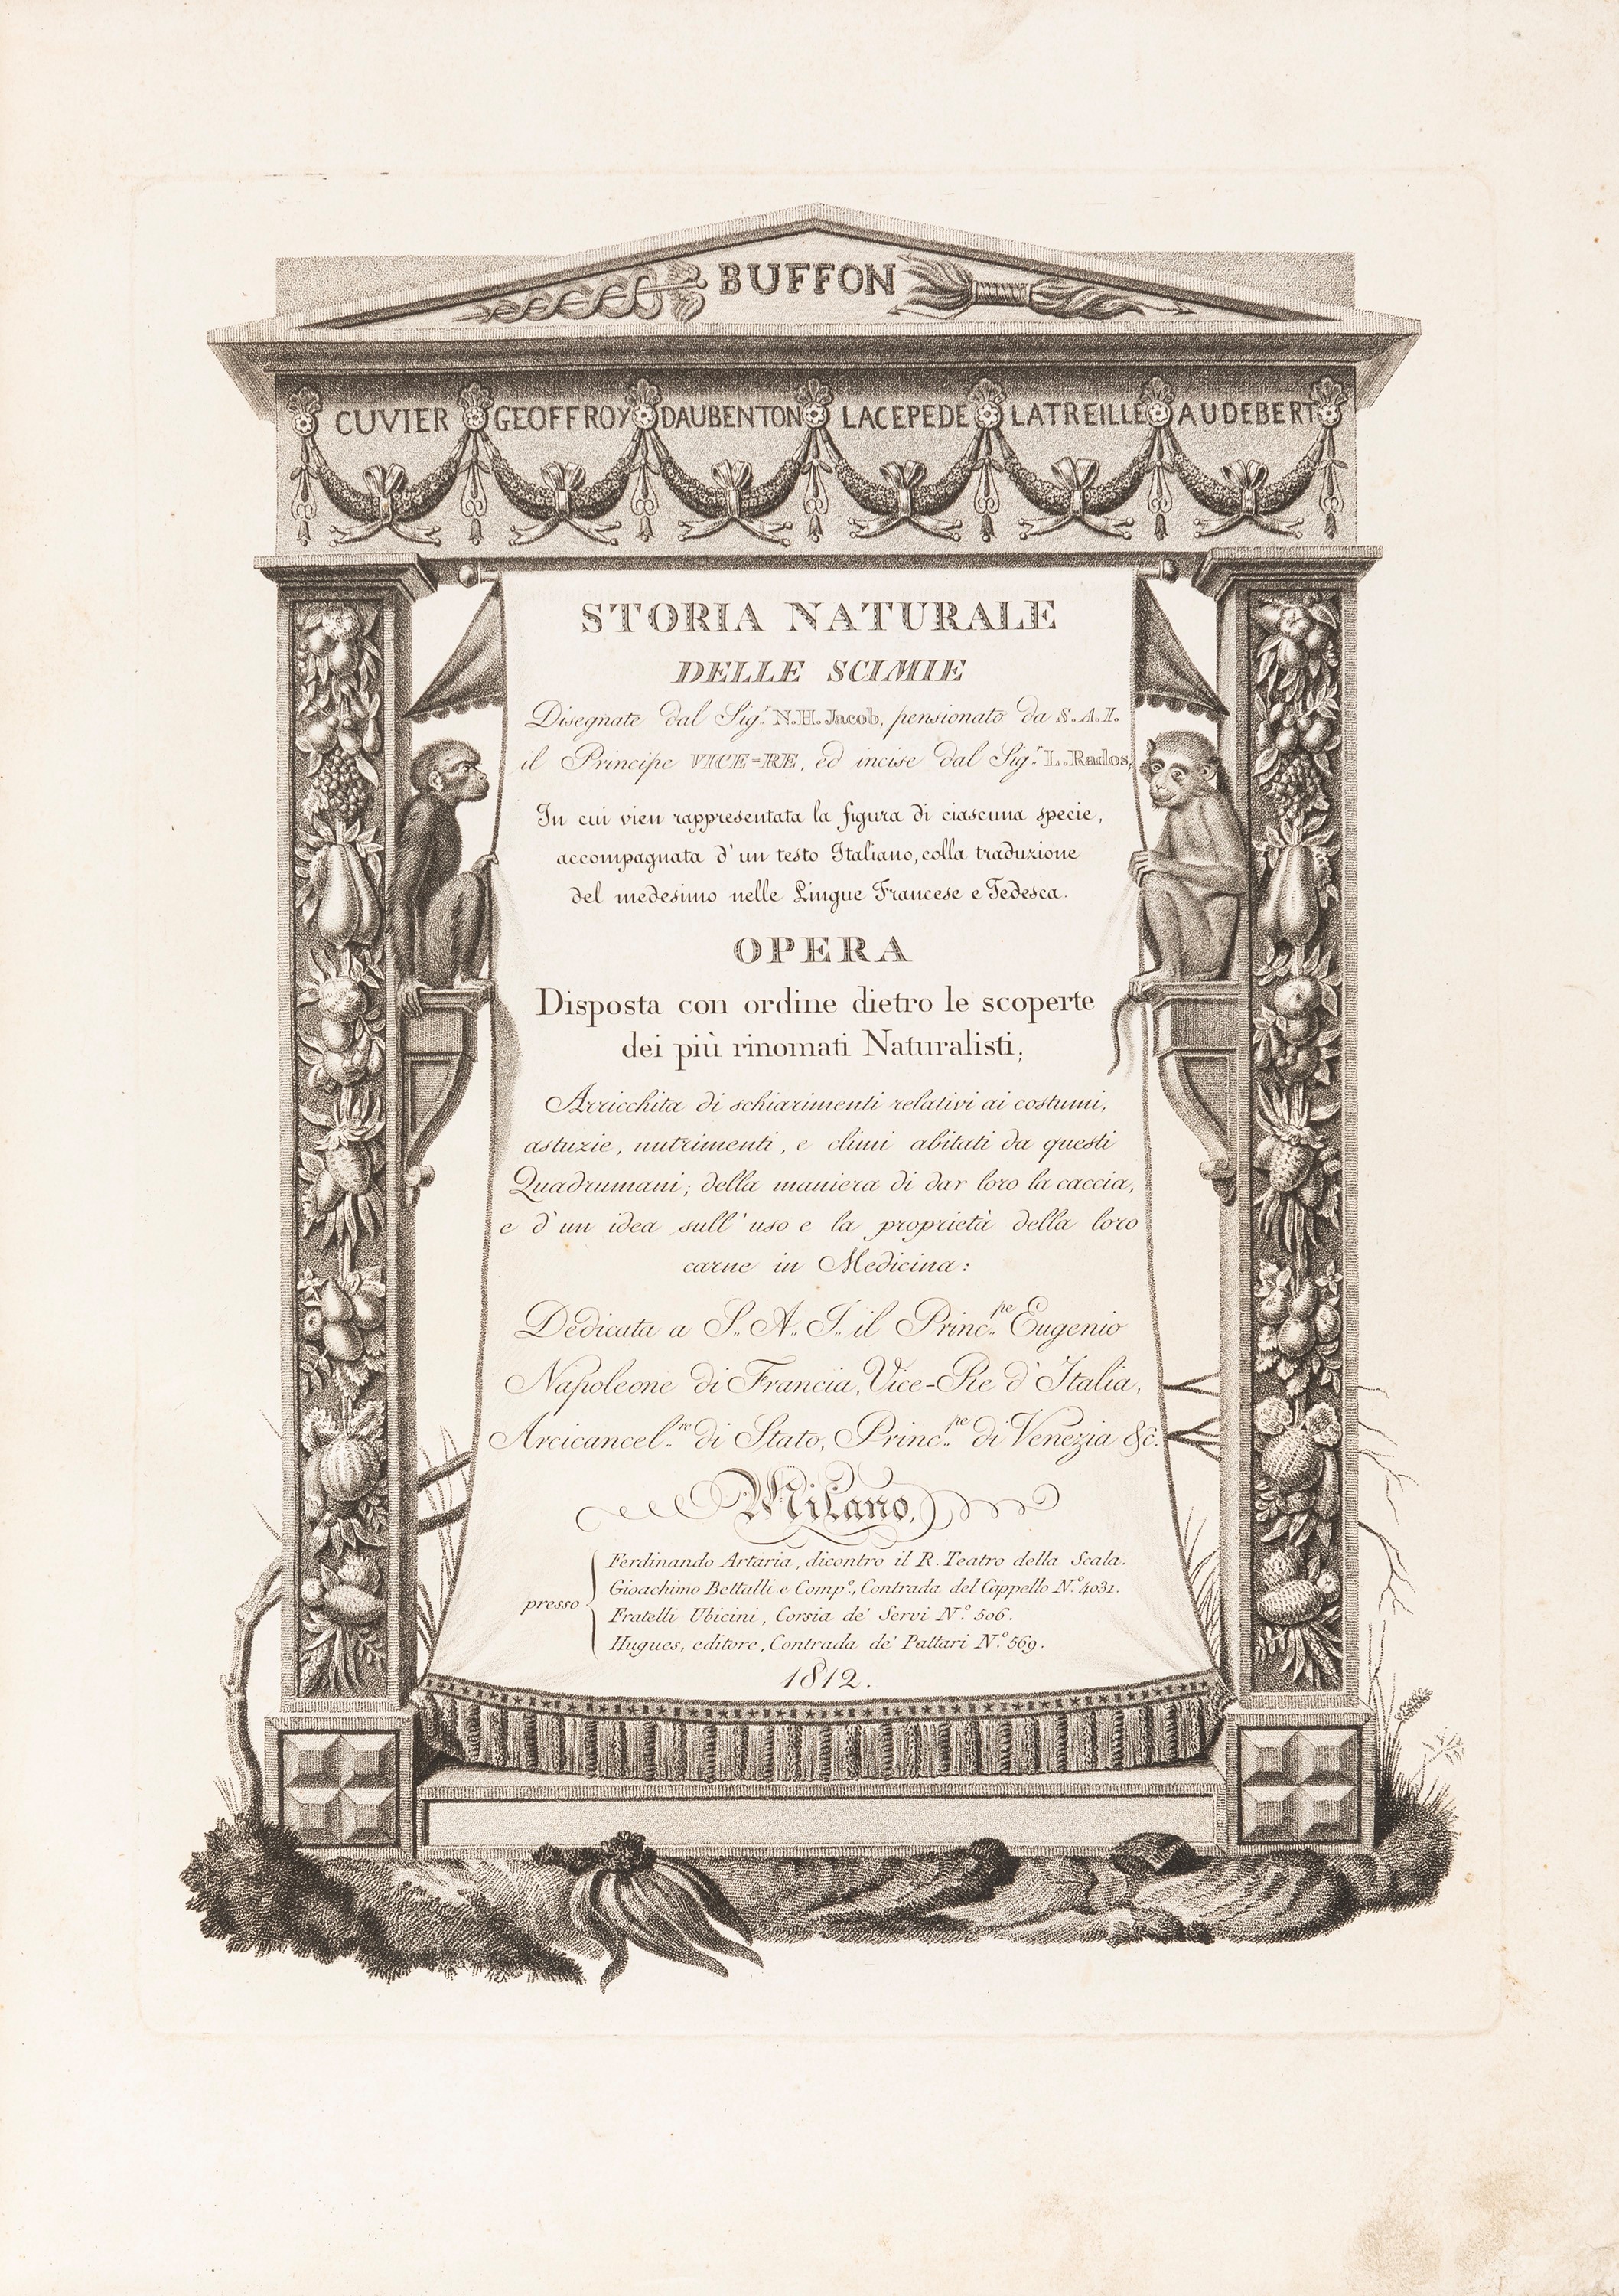 BUFFON
CUVIER GEOFFROY DAUBENTON LACEPEDE LATREILLE AUDEBERT
STORIA NATURALE
DELLE SCIMIE
Disegnate dal Sig.r N.H. Jacob, pensionato da S.A.I.
il Principe VICE=RE, ed incise dal Sig.r L. Rados,
In cui vien rappresentata la figura di ciascuna specie,
accompagnata d'un testo Italiano, colla traduzione
del medesimo nelle Lingue Francese e Tedesca.
OPERA
Disposta con ordine dietro le scoperte
dei più rinomati Naturalisti;
Arricchita di schiarimenti relativi ai costumi,
astuzie, nutrimenti, e climi abitati da questi
Quadrumani; della maniera di dar loro la caccia,
e d'un idea sull'uso e la proprietà della loro
carne in Medicina:
Dedicata a S. A. I. il Princ.pe Eugenio
Napoleone di Francia, Vice-Re d'Italia,
Arcicancel.re di Stato, Princ.pe di Venezia &c.
Milano,
presso
Ferdinando Artaria, dicontro il R. Teatro della Scala.
Gioachimo Bettalli e Comp.o, Contrada del Cappello N.o 4031.
Fratelli Ubicini, Corsia de' Servi N.o 506.
Hugues, editore, Contrada de' Pattari N.o 569.
1812.